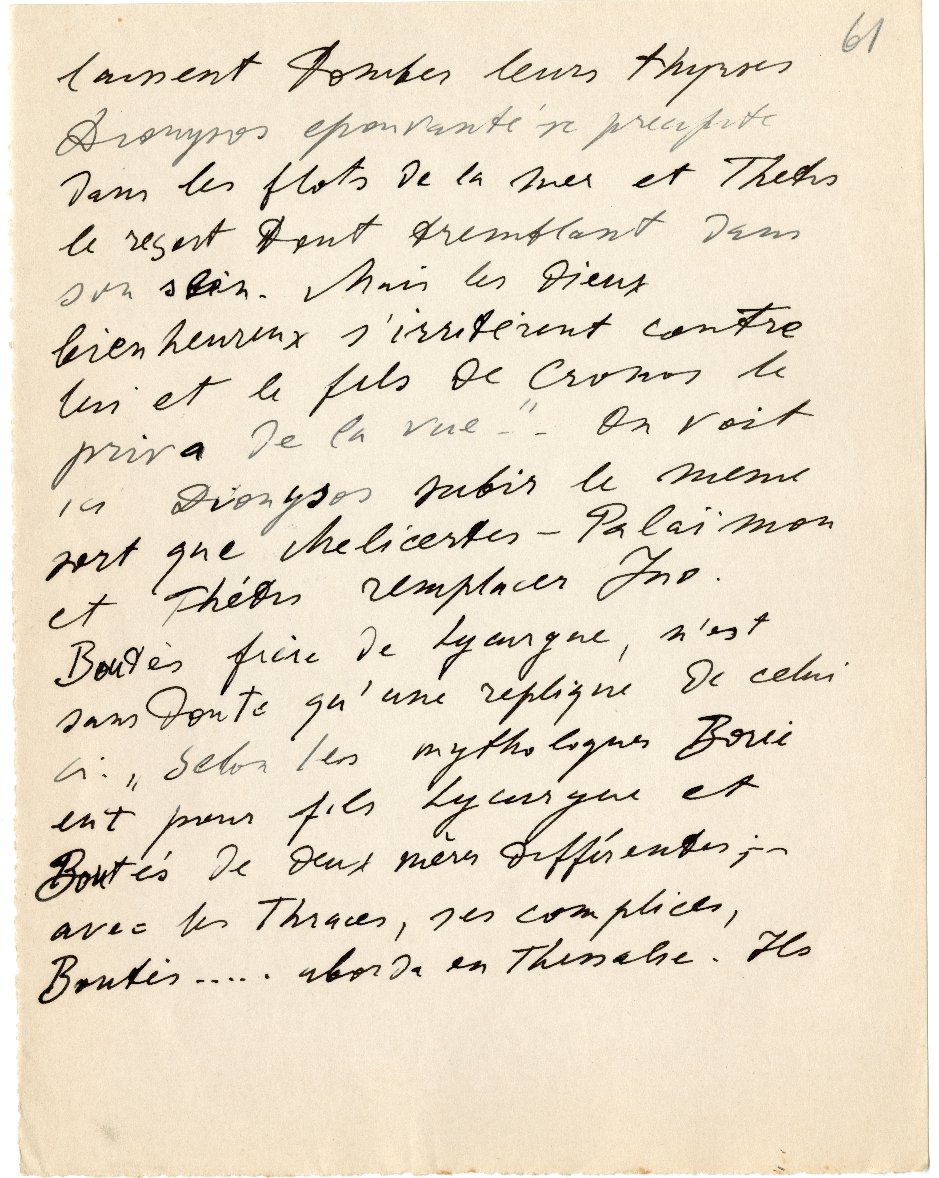 61
laissent tomber leurs thyrses
Dionysos epouvanté se precipite
dans les flots de la mer et Thetis
le reçoit tout tremblant dans
son sein. Mais les dieux
bienheureux s'irritèrent contre
lui et le fils de Cronos le
priva de la vue –" – On voit
ici Dionysos subir le meme
sort que Melicertes – Palaïmon
et Thétis remplacer Ino.
Boutès frère de Lycurgue, n'est
sans doute qu'une replique de celui
ci. „ Selon les mythologues Borée
eut pour fils Lycurgue et
Boutés de deux mères différentes ; –
avec les Thraces, ses complices,
Boutès ..... aborda en Thessalie. Ils